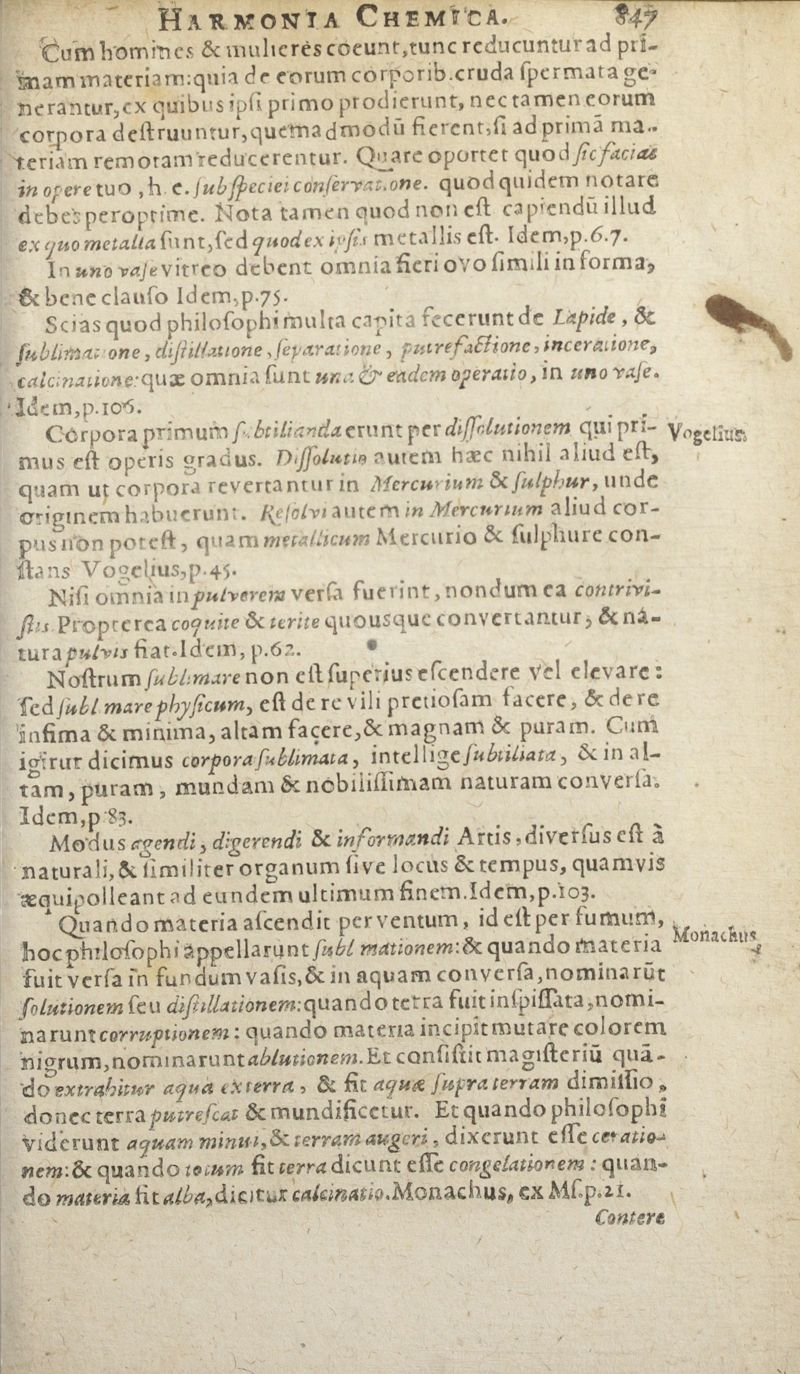 HARMONIA CHEMICA. 847
Cum homines & mulieres coeunt, tunc reducuntur ad pri-
mam materiam: quia de eorum corporib. cruda ſpermata ge-
nerantur, ex quibus ipſi primo prodierunt, nec tamen eorum
corpora deſtruuntur, quemadmodū fierent, ſi ad primā ma-
teriam remotam reducerentur. Quare oportet quod ſic facias
in opere tuo, h. e. ſub ſpeciei conſervatione. quod quidem notare
debes peroptime. Nota tamen quod non eſt capiendū illud
ex quo metalla ſunt, ſed quod ex ipſis metallis eſt. Idem, p. 6. 7.
In uno vaſe vitreo debent omnia fieri ovo ſimili in forma,
& bene clauſo Idem, p. 75.
Scias quod philoſophi multa capita fecerunt de Lapide, &
ſublimatione, diſtillatione, ſeparatione, putrefactione, inceratione,
calcinatione: quæ omnia ſunt una & eadem operatio, in uno vaſe.
Idem, p. 106.
Corpora primum ſubtilianda erunt per diſſolutionem qui pri- Vogelius.
mus eſt operis gradus. Diſſolutio autem hæc nihil aliud eſt,
quam ut corpora revertantur in Mercurium & ſulphur, unde
originem habuerunt. Reſolvi autem in Mercurium aliud cor-
pus non poteſt, quam metallicum Mercurio & ſulphure con-
ſtans Vogelius, p. 45.
Niſi omnia in pulverem verſa fuerint, nondum ea contrivi-
ſtis. Propterea coquite & terite quousque convertantur, & na-
tura pulvis fiat. Idem, p. 62.
Noſtrum ſublimare non eſt ſuperius eſcendere vel elevare:
ſed ſublimare phyſicum, eſt de re vili pretioſam facere, & de re
infima & minima, altam facere, & magnam & puram. Cum
igitur dicimus corpora ſublimata, intellige ſubtiliata, & in al-
tam, puram, mundam & nobiliſſimam naturam converſa.
Idem, p 83.
Modus agendi, digerendi & informandi Artis, diverſus eſt à
naturali, & ſimiliter organum ſive locus & tempus, quamvis
æquipolleant ad eundem ultimum finem. Idem, p. 103.
Quando materia aſcendit per ventum, id eſt per fumum, Monachus
hoc philoſophi appellarunt ſublimationem: & quando materia
fuit verſa in fundum vaſis, & in aquam converſa, nominarūt
ſolutionem ſeu diſtillationem: quando terra fuit inſpiſſata, nomi-
narunt corruptionem: quando materia incipit mutare colorem
nigrum, nominarunt ablutionem. Et conſiſtit magiſteriū quā-
do extrahitur aqua ex terra, & fit aquæ ſupra terram dimiſſio,
donec terra putreſcat & mundificetur. Et quando philoſophi
viderunt aquam minui, & terram augeri, dixerunt eſſe ceratio-
nem: & quando totum fit terra dicunt eſſe congelationem: quan-
do materia fit alba, dicitur calcinatio. Monachus, ex Mſ. p. 21.
Contere